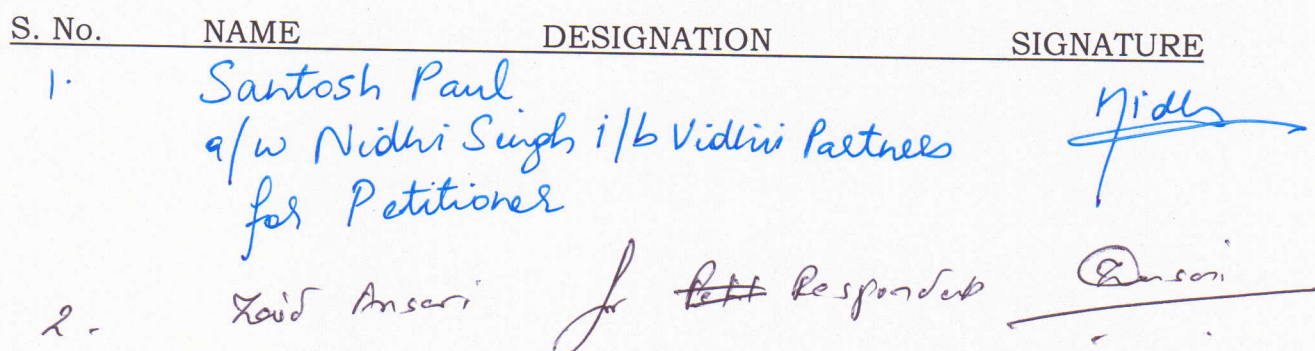 S. No. NAME DESIGNATION SIGNATURE
1. Santosh Paul
a/w Nidhi Singh i/b Vidhii Partners
for Petitioner Nidhi
2. Zaid Ansari for Respondent ZAnsari